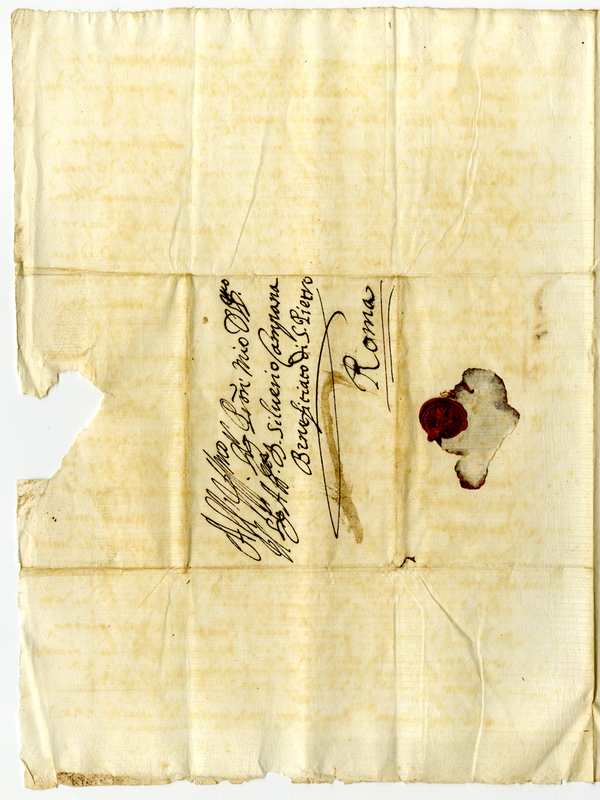 All Ill.mo
Sig.r Sig.r mio
Il Sig.r Ab.e D. Silverio Campana
Beneficiato di S. Pietro
Roma